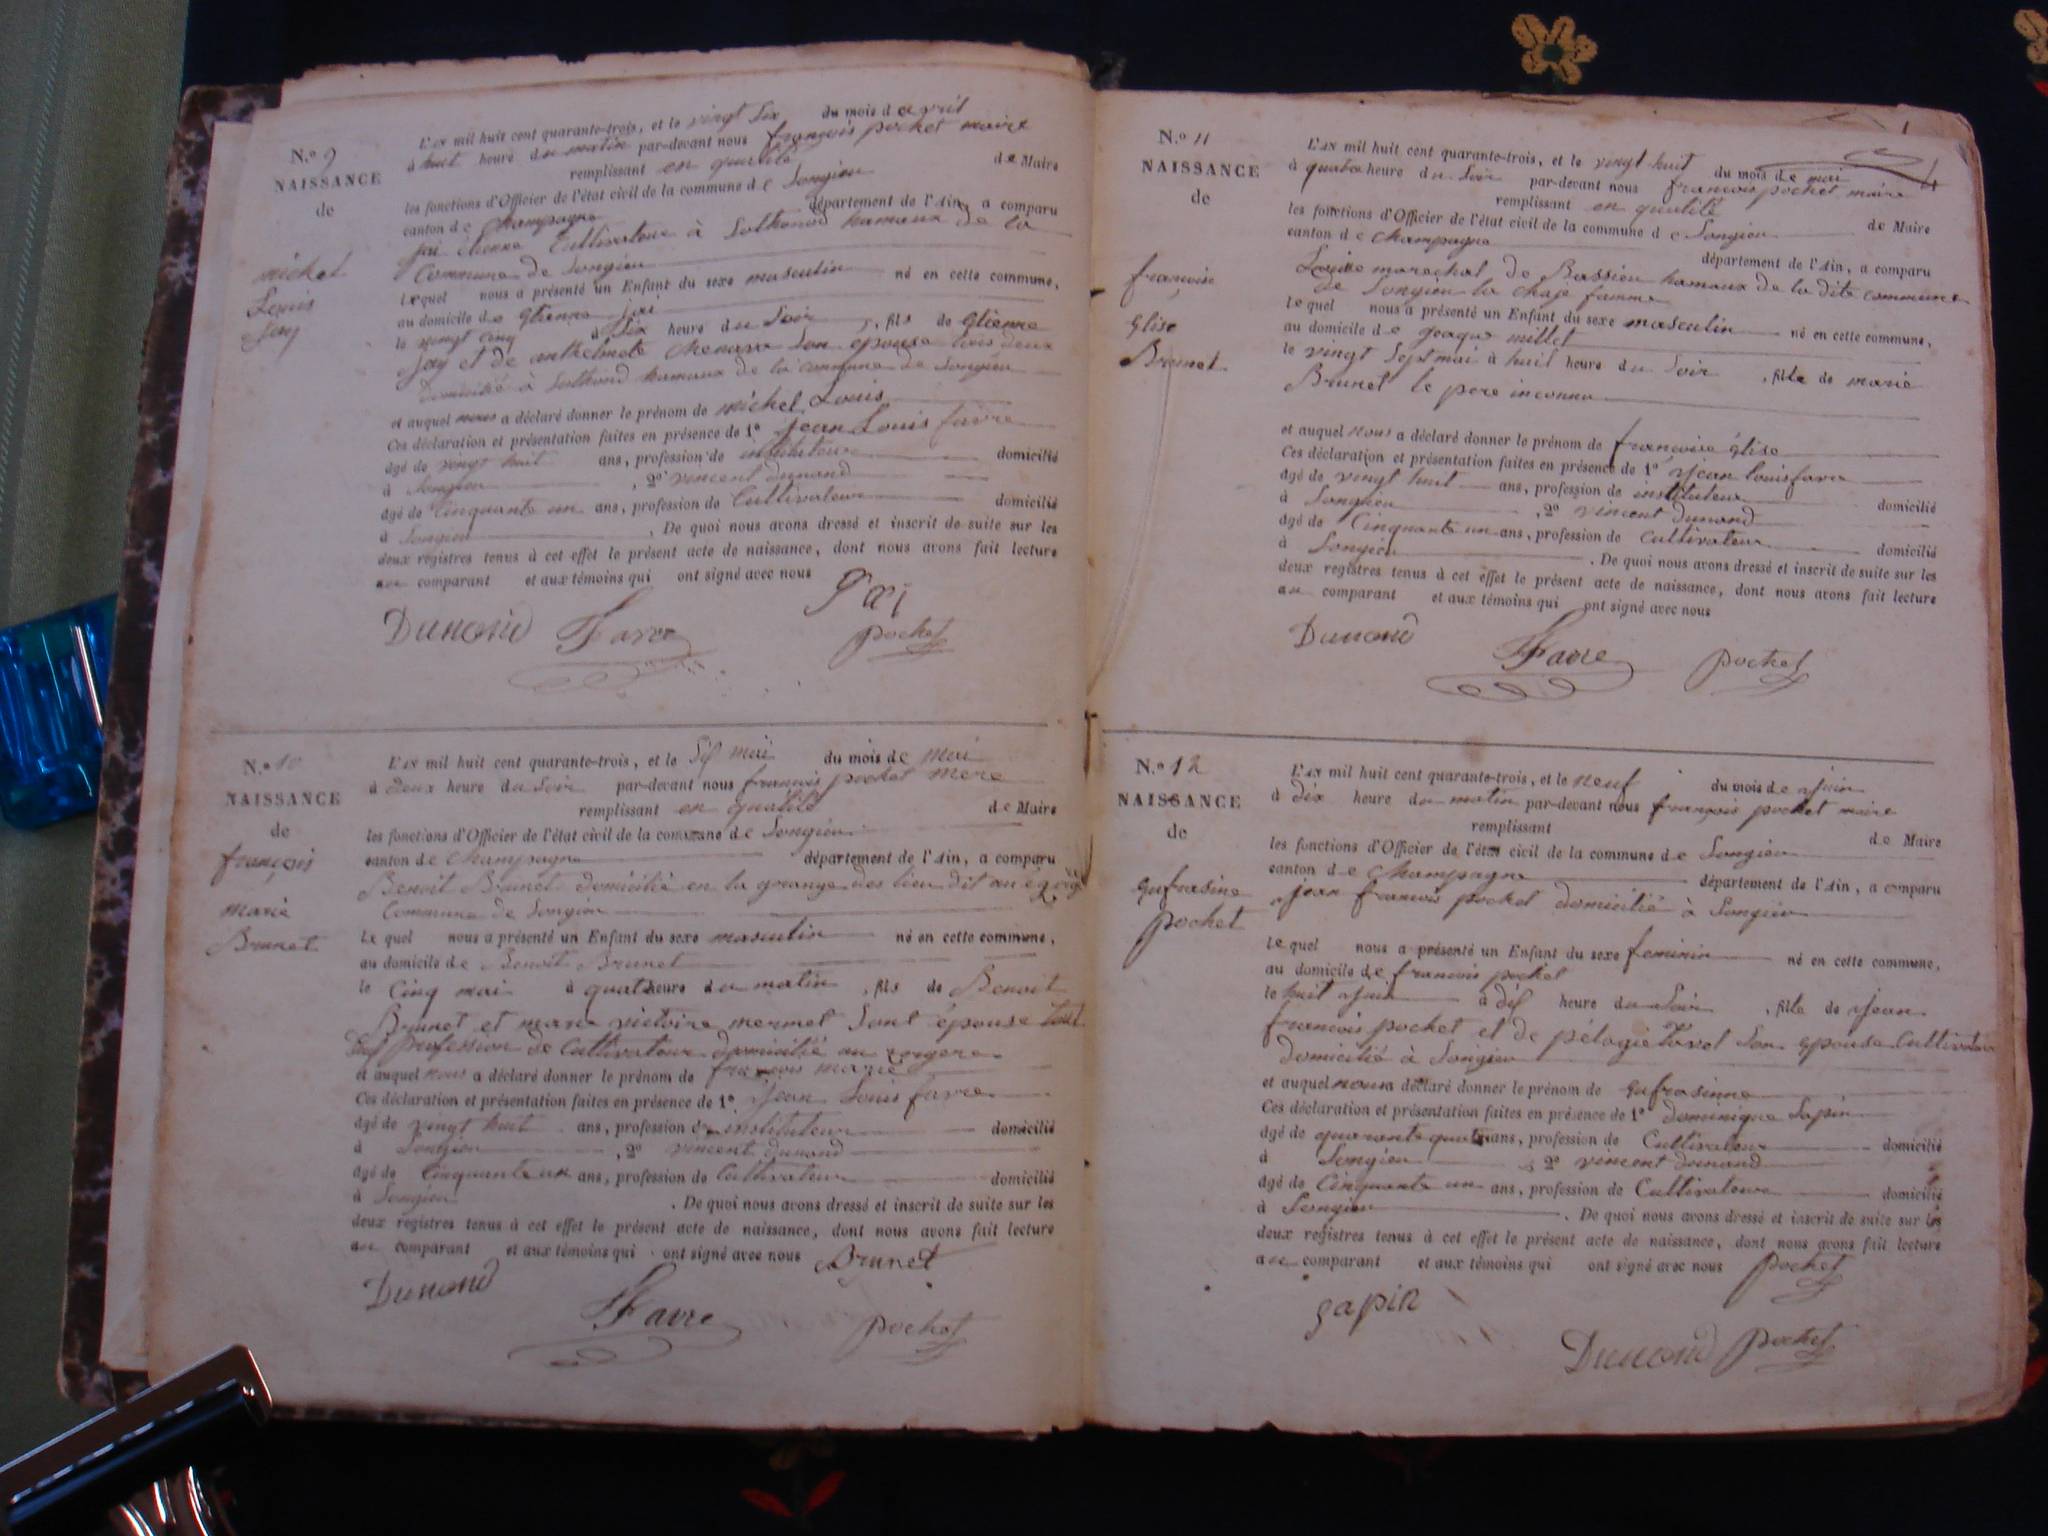 N.º 9
NAISSANCE
de
michel
Louis
Jay
L'AN mil huit cent quarante-trois, et le vingt six du mois d'avril
à huit heure du matin par-devant nous françois pochet maire
remplissant en qualité de Maire
les fonctions d'Officier de l'état civil de la commune de Songieu
canton de Champagne département de l'Ain, a comparu
Jai Etienne Cultivateur à Sothonod hamaux de la
Commune de Songieu
Lequel nous a présenté un Enfant du sexe masculin né en cette commune,
au domicile de Etienne Jai
le vingt cinq à dix heure du Soir, fils de Etienne
Jay et de anthelmete Chenava Son épouse tous deux
domicilié à Sothonod hamaux de la commune de Songieu
et auquel nous a déclaré donner le prénom de michel Louis
Ces déclaration et présentation faites en présence de 1º Jean Louis favre
âgé de vingt huit ans, profession de instituteur domicilié
à Songieu, 2º vincent dunand
âgé de Cinquante un ans, profession de Cultivateur domicilié
à Songieu. De quoi nous avons dressé et inscrit de suite sur les
deux registres tenus à cet effet le présent acte de naissance, dont nous avons fait lecture
au comparant et aux témoins qui ont signé avec nous
Jai
Dunand Favre pochet
N.º 10
NAISSANCE
de
françois
marie
Brunet
L'AN mil huit cent quarante-trois, et le Sis mai du mois de mai
à Deux heure du Soir par-devant nous françois pochet mere
remplissant en qualité de Maire
les fonctions d'Officier de l'état civil de la commune de Songieu
canton de Champagne département de l'Ain, a comparu
Benoit Brunet domicilié en la grange des lieu dit au
Commune de Songieu
Le quel nous a présenté un Enfant du sexe masculin né en cette commune,
au domicile de Benoit Brunet
le Cinq mai à quatre heure du matin, fils de Benoit
Brunet et marie victoire mermet Sont épouse
profession de Cultivateur domicilié au
et auquel nous a déclaré donner le prénom de françois marie
Ces déclaration et présentation faites en présence de 1º Jean Louis favre
âgé de vingt huit ans, profession de instituteur domicilié
à Songieu, 2º vincent dunand
âgé de Cinquante un ans, profession de Cultivateur domicilié
à Songieu. De quoi nous avons dressé et inscrit de suite sur les
deux registres tenus à cet effet le présent acte de naissance, dont nous avons fait lecture
au comparant et aux témoins qui ont signé avec nous Brunet
Dunand
Favre pochet
N.º 11
NAISSANCE
de
françoise
Elise
Brunet
L'AN mil huit cent quarante-trois, et le vingt huit du mois de mai
à quatre heure du Soir par-devant nous françois pochet maire
remplissant en qualité de Maire
les fonctions d'Officier de l'état civil de la commune de Songieu
canton de Champagne département de l'Ain, a comparu
Louise marechal de Bassieu hamaux de la dite commune
de Songieu la chaje famme
Le quel nous a présenté un Enfant du sexe masculin né en cette commune,
au domicile de millet
le vingt Sept mai à huit heure du Soir, fille de marie
Brunet le pere inconnu
et auquel nous a déclaré donner le prénom de françoise Elise
Ces déclaration et présentation faites en présence de 1º Jean louis favre
âgé de vingt huit ans, profession de instituteur domicilié
à Songieu, 2º vincent dunand
âgé de Cinquante un ans, profession de Cultivateur domicilié
à Songieu. De quoi nous avons dressé et inscrit de suite sur les
deux registres tenus à cet effet le présent acte de naissance, dont nous avons fait lecture
au comparant et aux témoins qui ont signé avec nous
Dunand
Favre pochet
N.º 12
NAISSANCE
de
Eufrasine
pochet
L'AN mil huit cent quarante-trois, et le neuf du mois de Juin
à dix heure du matin par-devant nous françois pochet maire
remplissant de Maire
les fonctions d'Officier de l'état civil de la commune de Songieu
canton de Champagne département de l'Ain, a comparu
Jean françois pochet domicilié à Songieu
Le quel nous a présenté un Enfant du sexe feminin né en cette commune,
au domicile de francois pochet
le huit Juin à dis heure du Soir, fille de Jean
francois pochet et de pélagie Tavel Son Epouse Cultivateur
domicilié à Songieu
et auquel nous a déclaré donner le prénom de Eufrasinne
Ces déclaration et présentation faites en présence de 1º dominique Sapin
âgé de quarante quatre ans, profession de Cultivateur domicilié
à Songieu, 2º vincent dunand
âgé de Cinquante un ans, profession de Cultivateur domicilié
à Songieu. De quoi nous avons dressé et inscrit de suite sur les
deux registres tenus à cet effet le présent acte de naissance, dont nous avons fait lecture
au comparant et aux témoins qui ont signé avec nous pochet
sapin
Dunand pochet